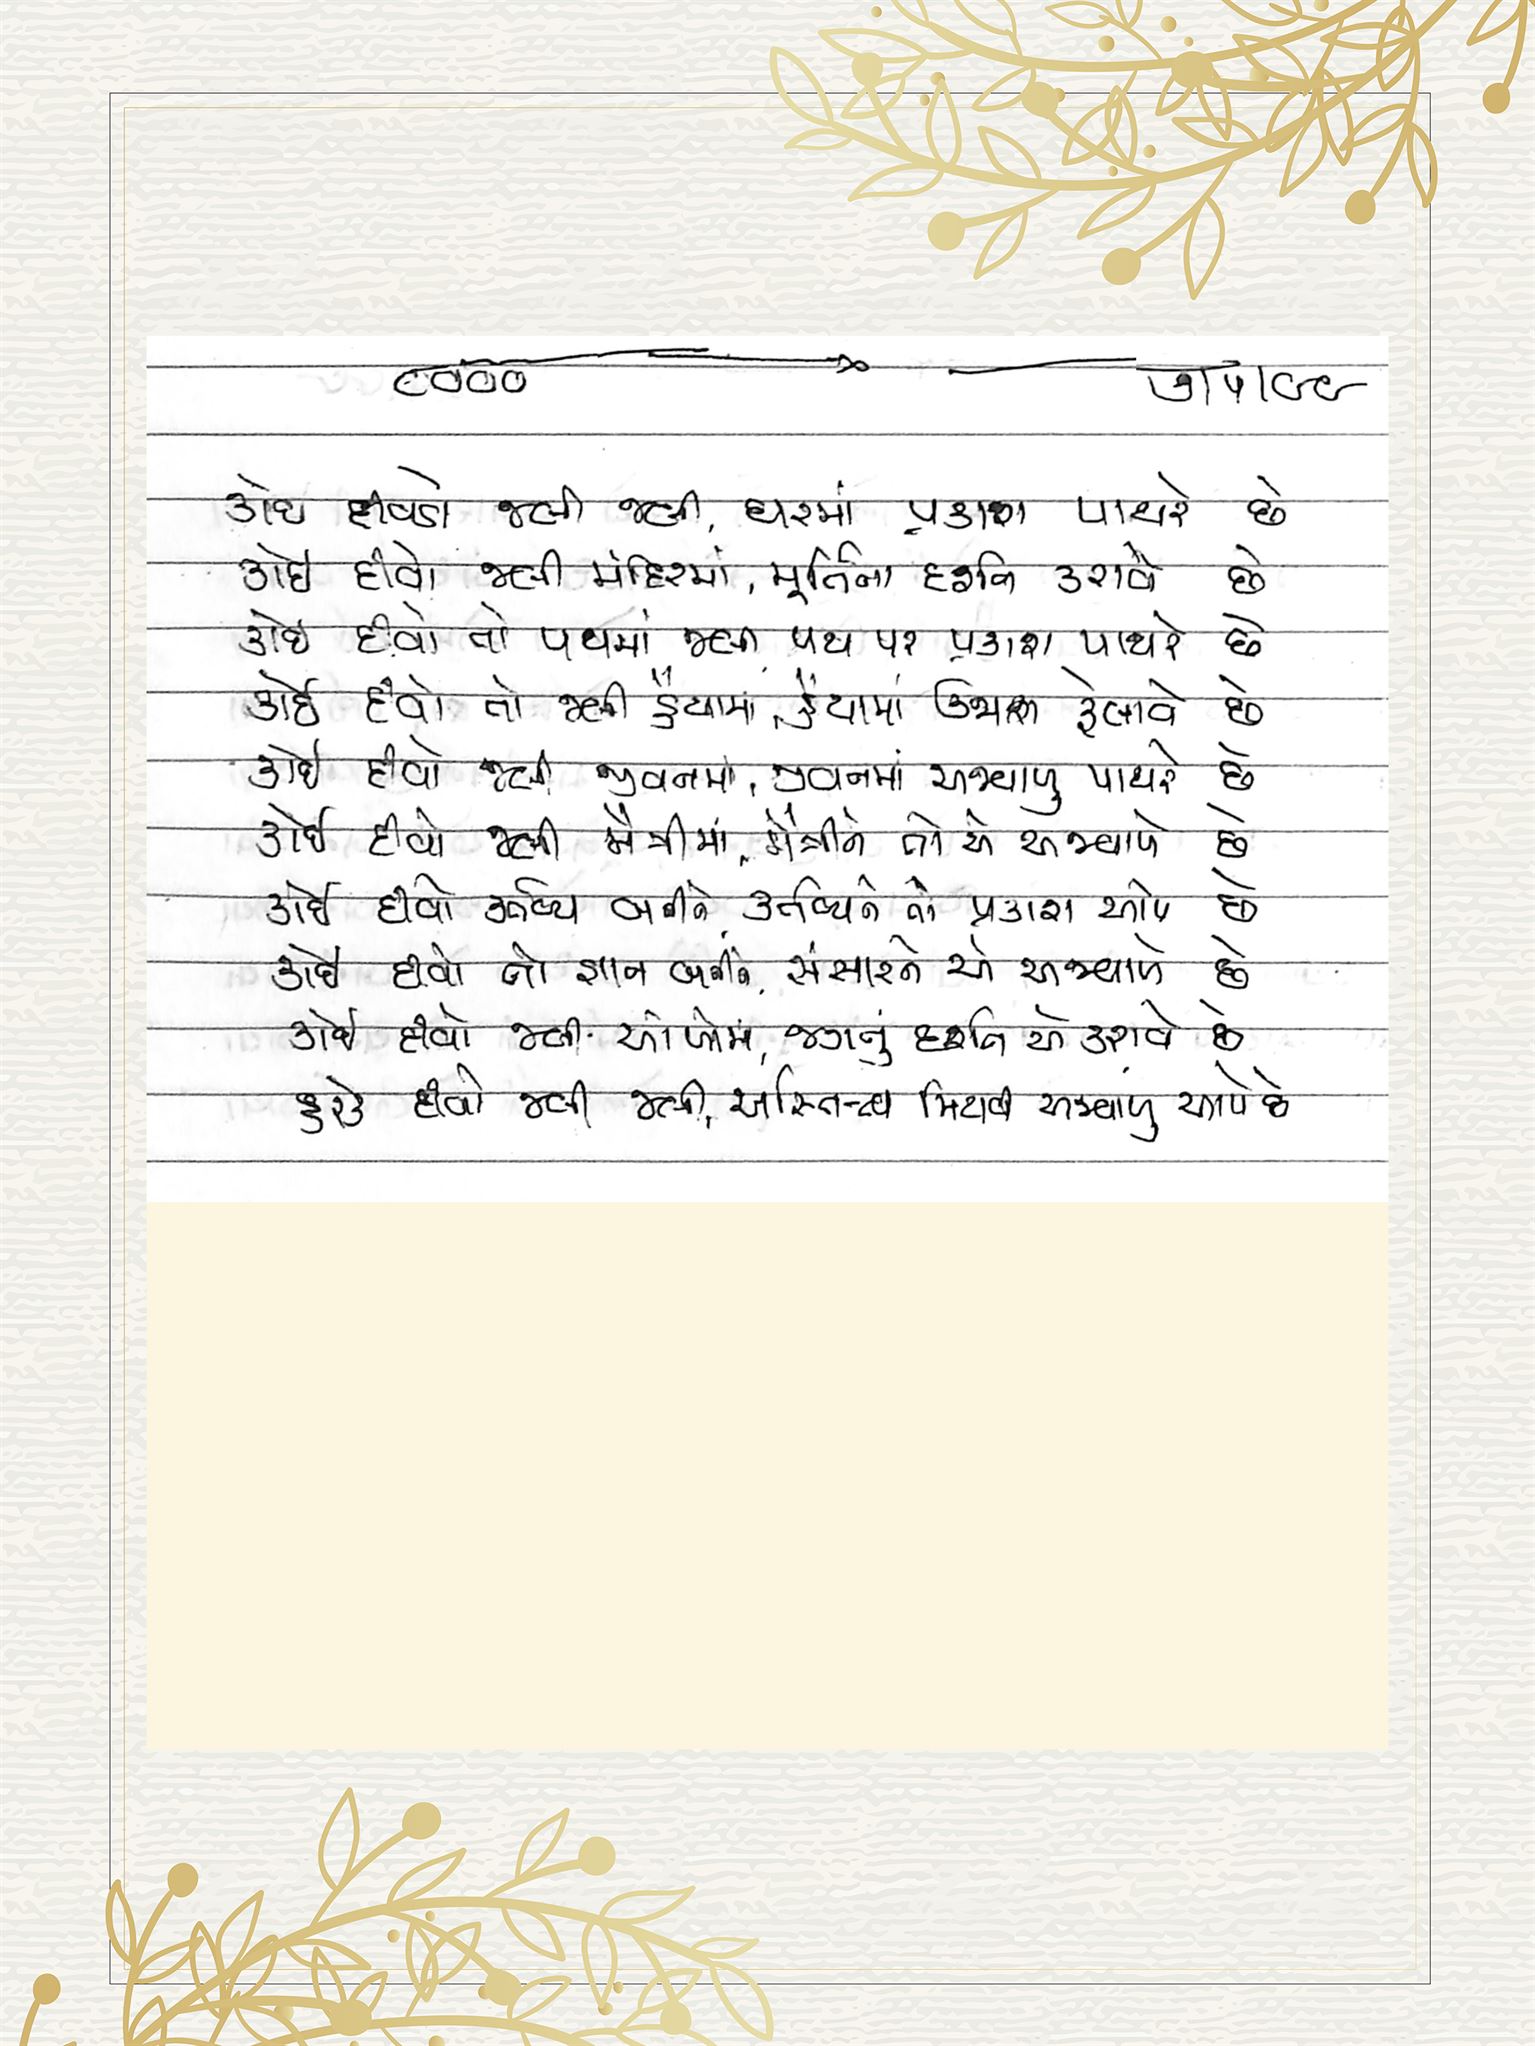 ૮૦૦૦ ૭/૫/૯૯
કોઇ દીવડો જલી જલી, ઘરમાં પ્રકાશ પાથરે છે
કોઈ દીવો જલી મંદિરમાં, મૂર્તિના દર્શન કરાવે છે
કોઈ દીવો તો પથમાં જલી, પથ પર પ્રકાશ પાથરે છે
કોઈ દીવો તો જલી હૈયામાં, હૈયામાં ઉજાશ રેલાવે છે
કોઈ દીવો જલી જીવનમાં, જીવનમાં અજવાળું પાથરે છે
કોઈ દીવો જલી મૈત્રીમાં, મૈત્રીને તો એ અજવાળે છે
કોઈ દીવો કર્તવ્ય બનીને, કર્તવ્યને તો પ્રકાશ આપે છે
કોઈ દીવો તો જ્ઞાન બનીને, સંસારને એ અજવાળે છે
કોઈ દીવો જલી આંખોમાં, જગનું દર્શન એ કરાવે છે
હરેક દીવો જલી જલી, અસ્તિત્વ મિટાવી અજવાળું આપે છે